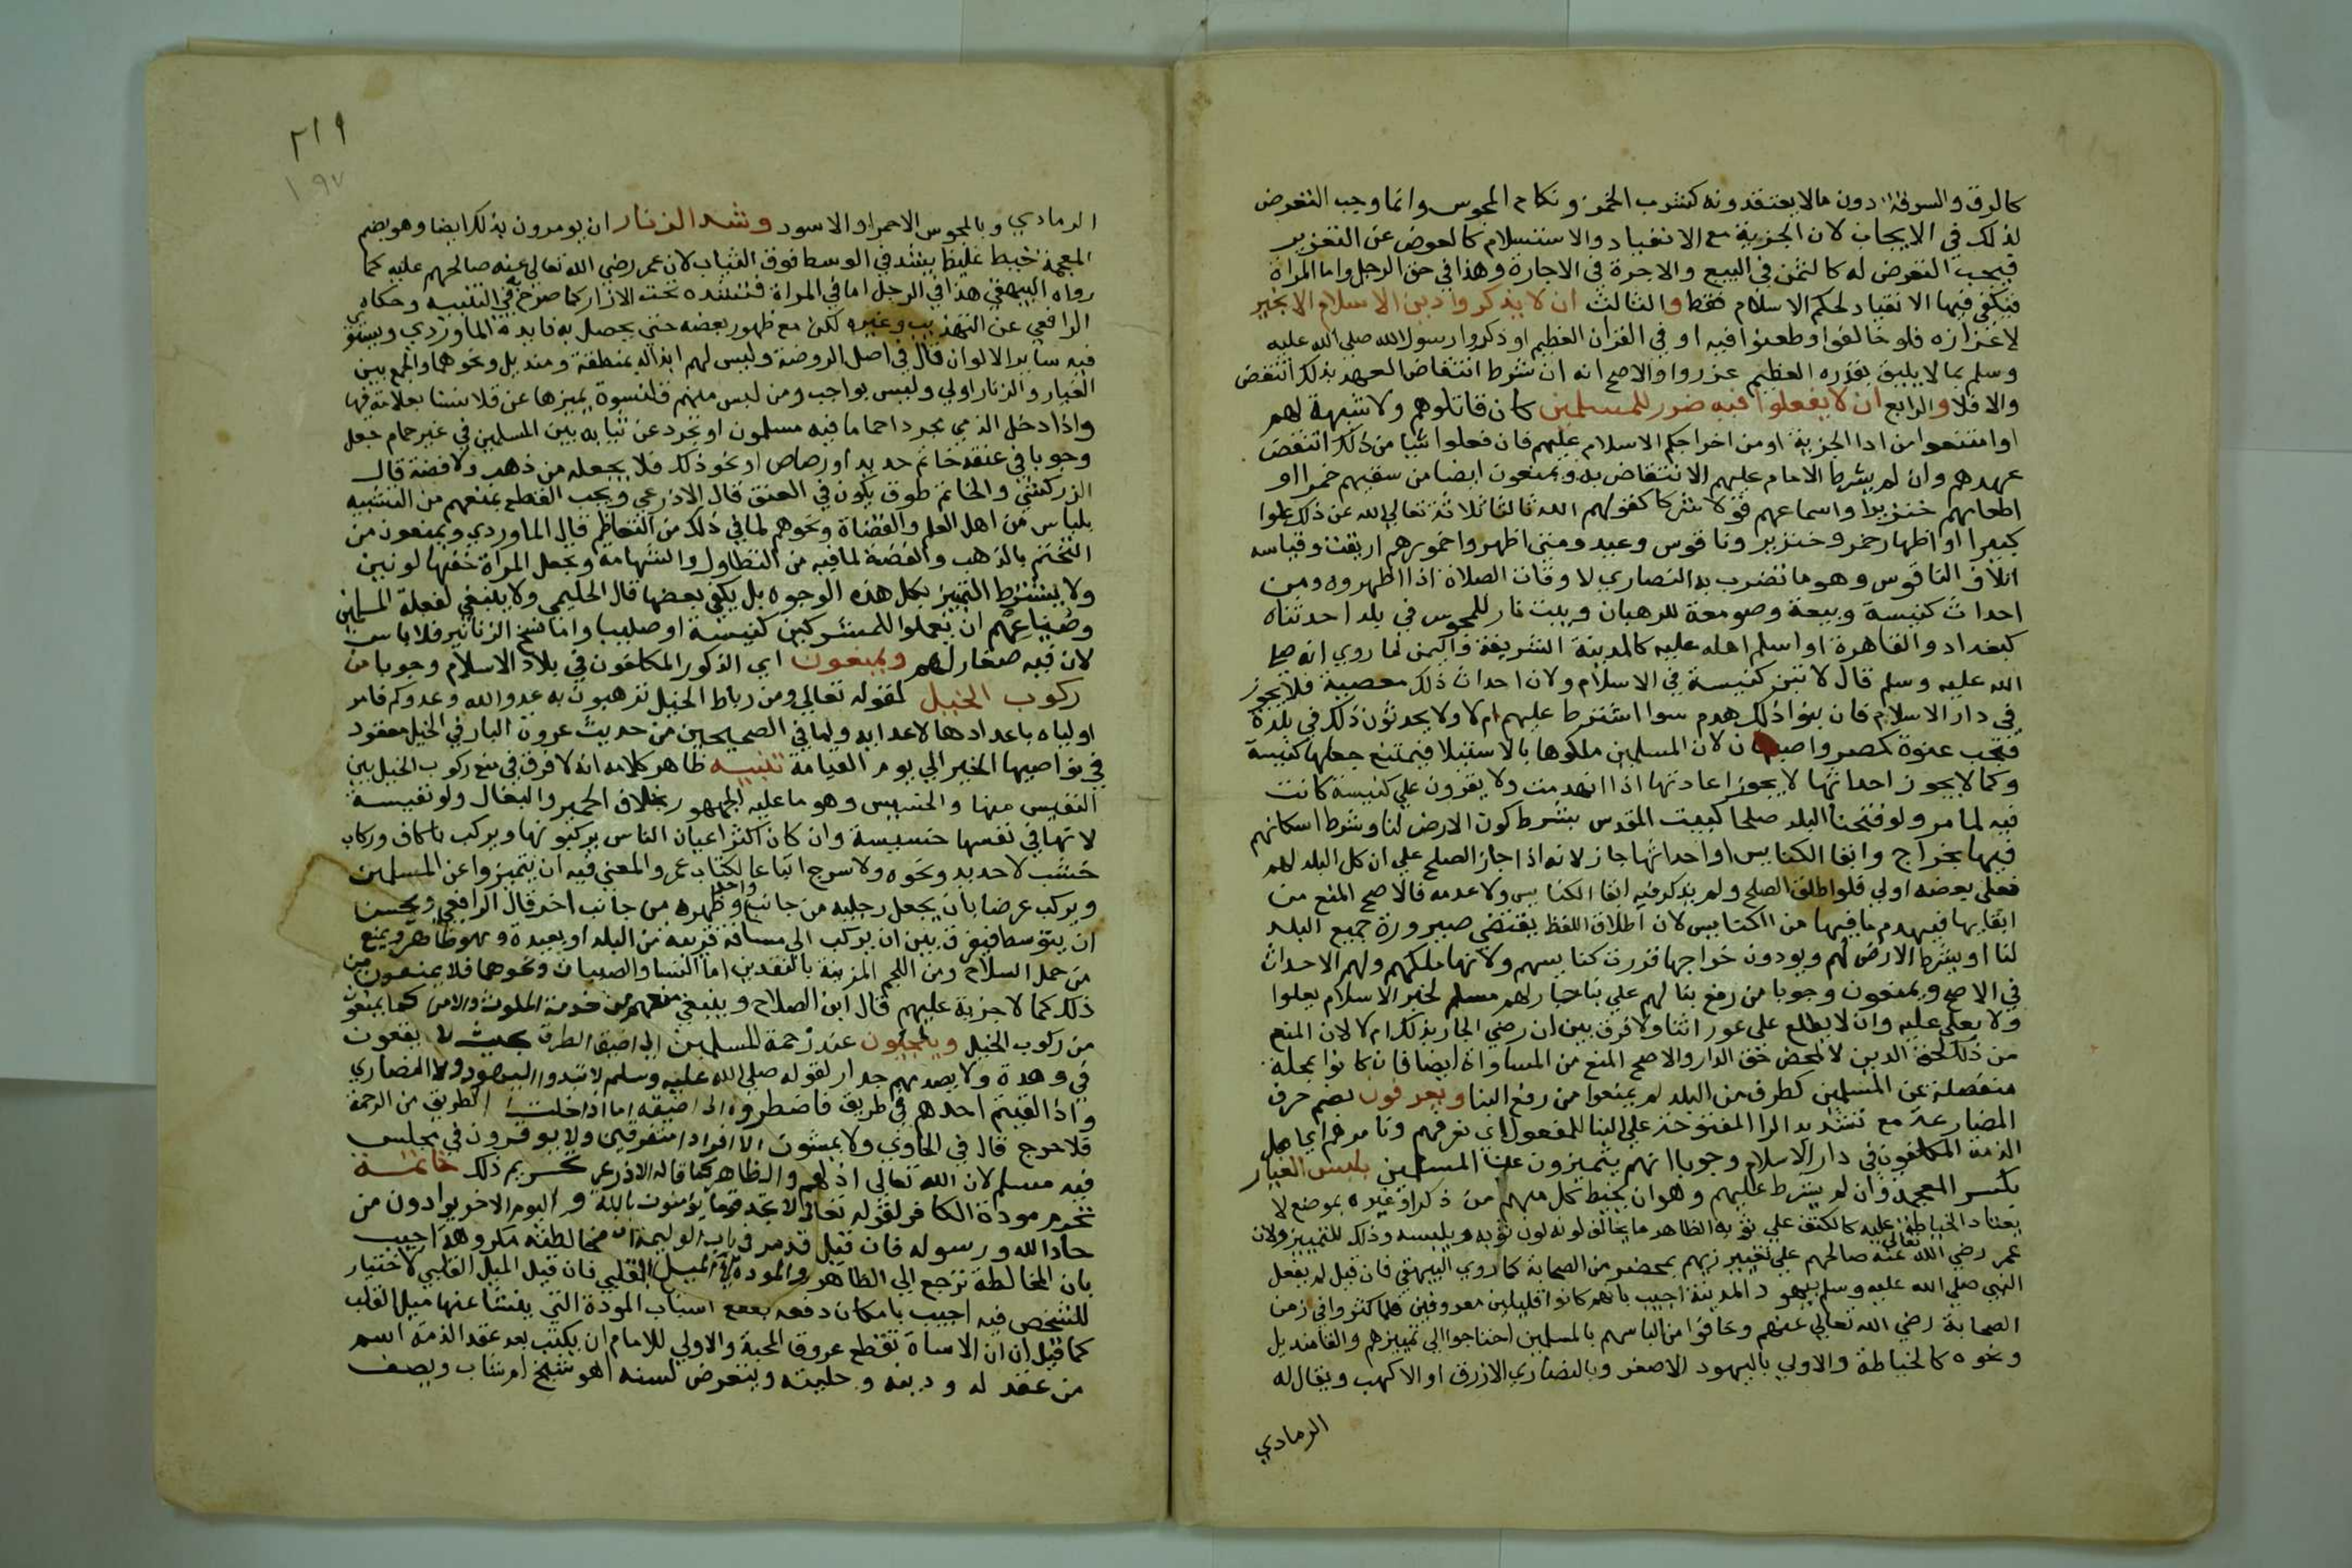 كالزنا والسرقة دون ما لا يعتقدونه كشرب الخمر ونكاح المجوس وانما وجب التعرض
لذلك في الايجاب لان الجزية مع الانقياد والاستسلام كالعوض عن التقرير
فيجب التعرض له كالثمن في البيع والاجرة في الاجارة وهذا في حق الرجل واما المراة
فيكفي فيها الانقياد لحكم الاسلام فقط والثالث ان لا يذكروا دين الاسلام الا بخير
لاعزازه فلو خالفوا وطعنوا فيه او في القران العظيم او ذكروا رسول الله صلى الله عليه
وسلم بما لا يليق بقدره العظيم عزروا والاصح انه ان شرط انتقاض العهد بذلك انتقض
والا فلا والرابع ان لا يفعلوا فيه ضرر للمسلمين كان قاتلوهم ولا شبهة لهم
او امتنعوا من ادا الجزية او من اجرا حكم الاسلام عليهم فان فعلوا شيا من ذلك انتقض
عهدهم وان لم يشرط الامام عليهم الانتقاض به ويمنعون ايضا من سقيهم خمرا او
اطعامهم خنزيرا واسماعهم قولا شركا كقولهم الله ثالث ثلاثة تعالى الله عن ذلك علوا
كبيرا او اظهار خمر وخنزير وناقوس وعيد ومتى اظهروا خمورهم اريقت وقياسه
اتلاف الناقوس وهو ما تضرب به النصارى لاوقات الصلاة اذا اظهروه ومن
احداث كنيسة وبيعة وصومعة للرهبان وبيت نار للمجوس في بلد احدثناه
كبغداد والقاهرة او اسلم اهله عليه كالمدينة الشريفة واليمن لما روي انه صلى
الله عليه وسلم قال لا تبن كنيسة في الاسلام ولان احداث ذلك معصية فلا يجوز
في دار الاسلام فان بنوا ذلك هدم سوا اشترط عليهم ام لا ولا يحدثون ذلك في بلدة
فتحت عنوة كمصر واصبهان لان المسلمين ملكوها بالاستيلا فيمتنع جعلها كنيسة
وكما لا يجوز احداثها لا يجوز اعادتها اذا انهدمت ولا يقرون على كنيسة كانت
فيه لما مر ولو فتحنا البلد صلحا كبيت المقدس بشرط كون الارض لنا وشرط اسكانهم
فيها بخراج وابقا الكنايس او احداثها جاز لانه اذا جاز الصلح على ان كل البلد لهم
فعلى بعضه اولى فلو اطلق الصلح ولم يذكر فيه ابقا الكنايس ولا عدمه فالاصح المنع من
ابقايها فيهدم ما فيها من الكنايس لان اطلاق اللفظ يقتضي صيرورة جميع البلد
لنا او بشرط الارض لهم ويودون خراجها قررت كنايسهم ولانها ملكهم ولهم الاحداث
في الاصح ويمنعون وجوبا من رفع بنا لهم على بنا جار لهم مسلم لخبر الاسلام يعلوا
ولا يعلى عليه وان لا يطلع على عوراتنا ولا فرق بين ان رضي الجار بذلك ام لا لان المنع
من ذلك لحق الدين لا لمحض حق الدار والاصح المنع من المساواة ايضا فان كانوا بمحلة
منفصلة عن المسلمين كطرف من البلد لم يمنعوا من رفع البنا ويعرفون بضم حرف
المضارعة مع تشديد الرا المفتوحة على البنا للمفعول اي نعرفهم ونامرهم اي اهل
الذمة المكلفون في دار الاسلام وجوبا انهم يتميزون عن المسلمين بلبس الغيار
بكسر المعجمة وان لم يشرط عليهم وهو ان يخيط كل منهم من ذكر او غيره بموضع لا
يعتاد الخياطة عليه كالكتف على ثوبه الظاهر ما يخالف لونه لون ثوبه ويلبسه وذلك للتمييز ولان
عمر رضي الله تعالى عنه صالحهم على تغيير زيهم بمحضر من الصحابة كما روي البيهقي فان قيل لم يفعل
النبي صلى الله عليه وسلم بيهود المدينة اجيب بانهم كانوا قليلين معروفين فلما كثروا في زمن
الصحابة رضي الله تعالى عنهم وخافوا من التباسهم بالمسلمين احتاجوا الى تمييزهم والقا منديل
ونحوه كالخياطة والاولى باليهود الاصفر وبالنصارى الازرق او الاكهب ويقال له
الرمادي
٢١٩
١٩٧
الرمادي وبالمجوس الاحمر او الاسود وشد الزنار ان يومرون بذلك ايضا وهو بضم
المعجمة خيط غليظ يشد في الوسط فوق الثياب لان عمر رضي الله تعالى عنه صالحهم عليه كما
رواه البيهقي هذا في الرجل اما في المراة فتشده تحت الازار كما صرح به في التنبيه وحكاه
الرافعي عن التهذيب وغيره لكن مع ظهور بعضه حتى يحصل به فايدة الماوردي ويستوي
فيه ساير الالوان قال في اصل الروضة وليس لهم ابداله بمنطقة ومنديل ونحوهما والجمع بين
الغيار والزنار اولى وليس بواجب ومن لبس منهم قلنسوة يميزها عن قلانسنا بعلامة فيها
واذا دخل الذمي مجردا حماما فيه مسلمون او تجرد عن ثيابه بين المسلمين في غير حمام جعل
وجوبا في عنقه خاتم حديد او رصاص او نحو ذلك فلا يجعله من ذهب ولا فضة قال
الزركشي والخاتم طوق يكون في العنق قال الاذرعي ويجب القطع بمنعهم من التشبيه
بلباس من اهل العلم والقضاة ونحوهم لما في ذلك من التعاظم قال الماوردي ويمنعون من
التختم بالذهب والفضة لما فيه من التطاول والشهامة وتجعل المراة خفها لونين
ولا يشترط التمييز بكل هذه الوجوه بل يكفي بعضها قال الحليمي ولا ينبغي لفعلة المسلمين
وصياغهم ان يعملوا للمشركين كنيسة او صليبا واما نسج الزنانير فلا باس
لان فيه صغار لهم ويمنعون اي الذكور المكلفون في بلاد الاسلام وجوبا من
ركوب الخيل لقوله تعالى ومن رباط الخيل ترهبون به عدو الله وعدوكم فامر
اولياه باعدادها لاعدايه ولما في الصحيحين من حديث عروة البارقي الخيل معقود
في نواصيها الخير الى يوم القيامة تنبيه ظاهر كلامه انه لا فرق في منع ركوب الخيل بين
النفيس منها والخسيس وهو ما عليه الجمهور بخلاف الحمير والبغال ولو نفيسة
لانها في نفسها خسيسة وان كان اكثر اعيان الناس يركبونها ويركب باكاف وركاب
خشب لا حديد ونحوه ولا سرج اتباعا لكتاب عمر والمعنى فيه ان يتميزوا عن المسلمين
ويركب عرضا بان يجعل رجليه من جانب واحد وظهره من جانب اخر قال الرافعي ويحسن
ان يتوسط فيفرق بين ان يركب الى مسافة قريبة من البلد او بعيدة وهو ظاهر ويمنع
من حمل السلاح ومن اللجم المزينة بالنقدين اما النسا والصبيان ونحوهما فلا يمنعون من
ذلك كما لا جزية عليهم قال ابن الصلاح وينبغي منعهم من خدمة الملوك والامرا كما يمنعون
من ركوب الخيل ويلجئون عند زحمة المسلمين الى اضيق الطرق بحيث لا يقعون
في وهدة ولا يصدمهم جدار لقوله صلى الله عليه وسلم لا تبدوا اليهود ولا النصارى
واذا لقيتم احدهم في طريق فاضطروه الى اضيقه اما اذا خلت الطريق من الزحمة
فلا حرج قال في الحاوي ولا يمشون الا افرادا متفرقين ولا يوقرون في مجلس
فيه مسلم لان الله تعالى اذلهم والظاهر كما قاله الاذرعي تحريم ذلك خاتمة
تحرم مودة الكافر لقوله تعالى لا تجد قوما يؤمنون بالله واليوم الاخر يوادون من
حاد الله ورسوله فان قيل قد مر في باب الوليمة ان مخالطته مكروهة اجيب
بان المخالطة ترجع الى الظاهر والمودة الى الميل القلبي فان قيل الميل القلبي لا اختيار
للشخص فيه اجيب بامكان دفعه بقطع اسباب المودة التي ينشا عنها ميل القلب
كما قيل ان الاساة تقطع عروق المحبة والاولى للامام ان يكتب بعد عقد الذمة اسم
من عقد له ودينه وحليته ويتعرض لسنه اهو شيخ ام شاب ويصف